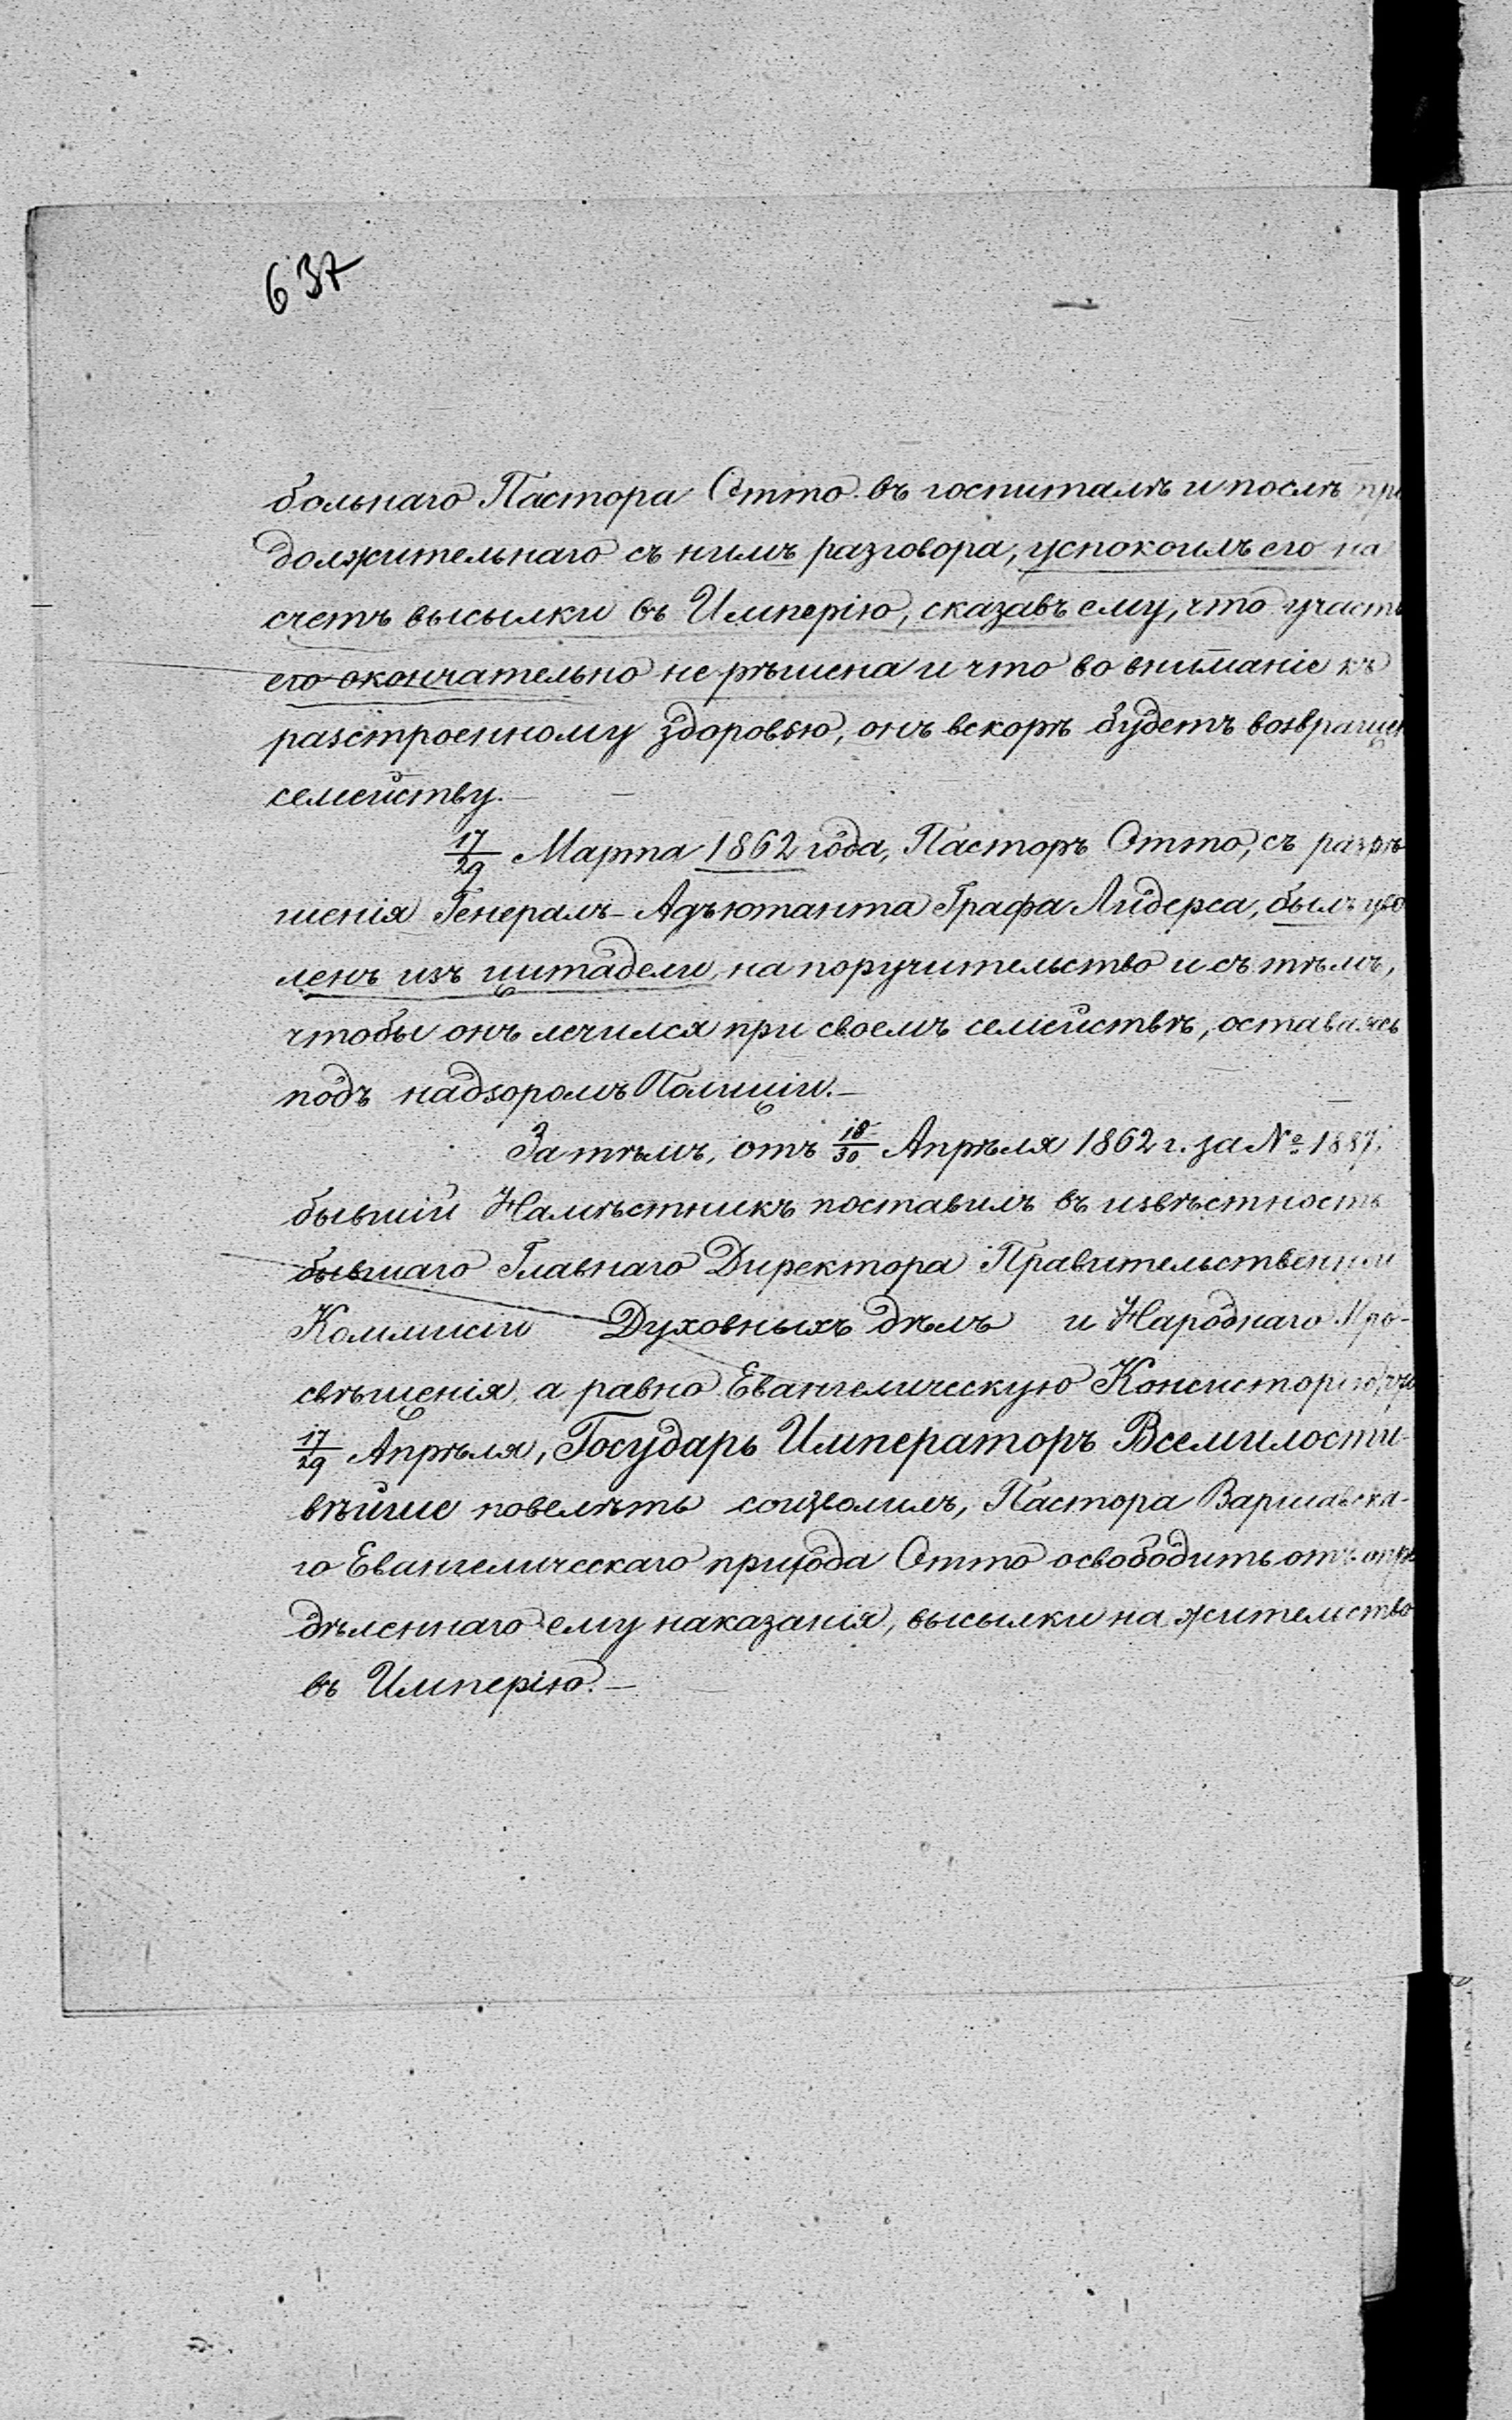 637
больнаго Пастора Отто въ госпиталѣ и послѣ пр
должительнаго съ нимъ разговора, успокоилъ его на
счетъ высылки въ Имперію, сказавъ ему, что участь
его окончательно не рѣшена и что во вниманіе къ
разстроенному здоровью, онъ вскорѣ будетъ возвращен
семейству.—
17/29 Марта 1862 года, Пасторъ Отто, съ разрѣ
шенія Генералъ-Адъютанта Графа Лидерса, былъ уво
ленъ изъ цитадели, на поручительство и съ тѣмъ,
чтобы онъ лечился при своемъ семействѣ, оставаясь
подъ надзоромъ Полиціи.—
За тѣмъ, отъ 18/30 Апрѣля 1862 г. за № 1887,
бывшій Намѣстникъ поставилъ въ извѣстность
бывшаго Главнаго Директора Правительственной
Коммисіи Духовныхъ дѣлъ и Народнаго Про-
свѣщенія, а равно Евангелическую Консисторію, что
17/29 Апрѣля, Государь Императоръ Всемилости-
вѣйше повелѣть соизволилъ, Пастора Варшавска-
го Евангелическаго прихода Отто освободить отъ опре
дѣленнаго ему наказанія, высылки на жительство
въ Имперію.—